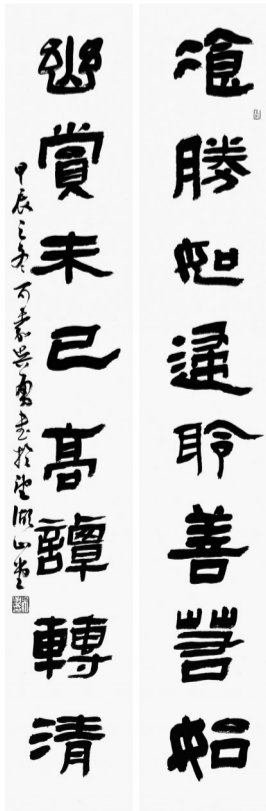 湌勝如歸聆善若始
幽賞未已高譚轉清
甲辰之冬吳勇書於望湖山堂